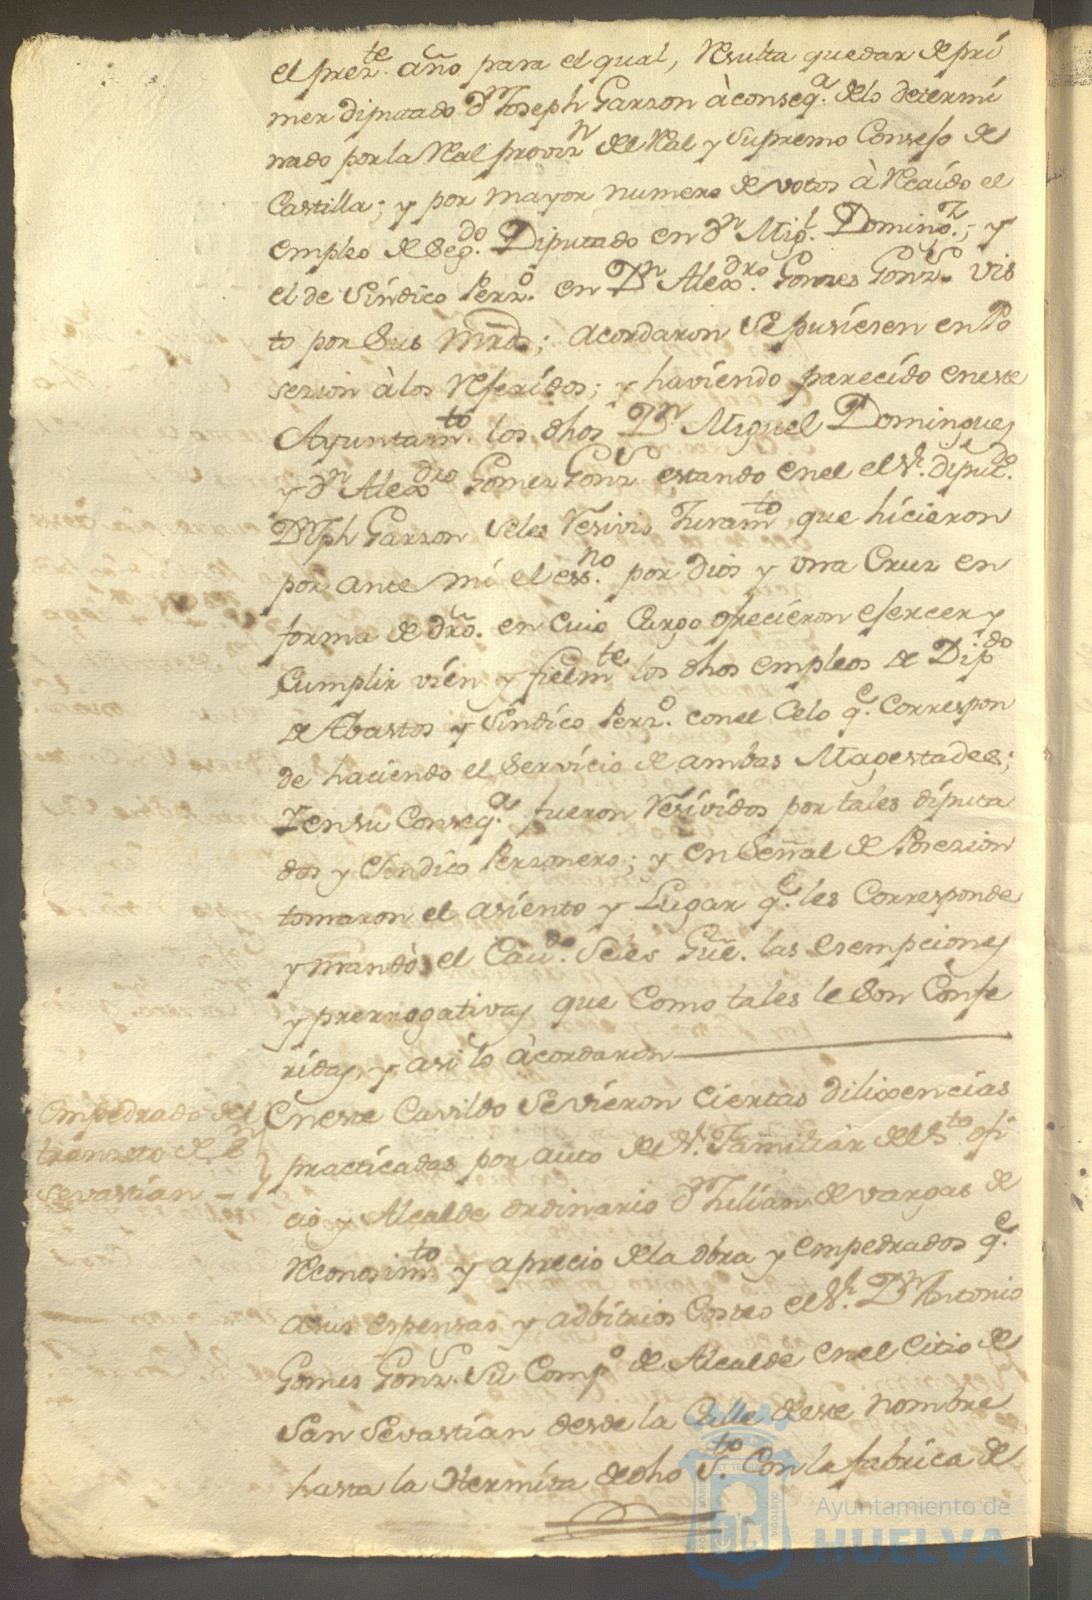 el prezte. año para el qual, Resulta quedar de pri
mer diputado Dn Joseph Garzon à conseqa. delo determi
nado por la Real provizn. del Real y Supremo Consejo de
Castilla; y por mayor numero de votos à Recaido el
empleo de Segdo. Diputado en Dn Migl. Domingz.; y
el de Sindico Perzo. en Dn Alexdro. Gomes Gonzs. vis
to por Sus Mrds; acordaron Se pusiesen en Po
sezion à los Referidos; y haviendo parecido en este
Ayuntamto. los dhos Dn Miguel Domingues
y Dn Alexdro Gomez Gonzs estando en el el Sr. diputdo.
Dn Jph Garzon Seles Resivio Juramto, que hicieron
por ante mi el essno. por Dios y una Cruz en
forma de dro. en cuio Cargo ofrecieron ejercer y
Cumplir vien y fielmte los dhos empleos de Dipdo
de Abastos y Sindico Perzo. con el Celo qe. Correspon
de haciendo el Servicio de ambas Magestades;
Y en su Conseqa. fueron Resividos por tales diputa
dos y Sindico Personero; y en Señal de Posezion
tomaron el asiento y Lugar qe. les Corresponde
y mandò el Cavdo. Seles Gue. las esempciones
y prerrogativas que Como tales le Son Confe
ridas, y asi lo àcordaron
Empedrado del
transito de Sn
Sevastian
En este Cavildo Se vieron Ciertas dilixencias
practicadas por auto del Sr. Familiar del Sto. ofi
cio y Alcalde ordinario Dn Julian de Vargas de
Reconosimto y aprecio de la obra y empedrados qe.
a sus espensas y adbitrios Costeo el Sr. Dn Antonio
Gomes Gonzs. Su Compo de Alcalde en el Citio de
San Sevastian desde la Calle de este nombre
hasta la Hermita de dho Sto. Con la fabrica de
Ayuntamiento de
HUELVA